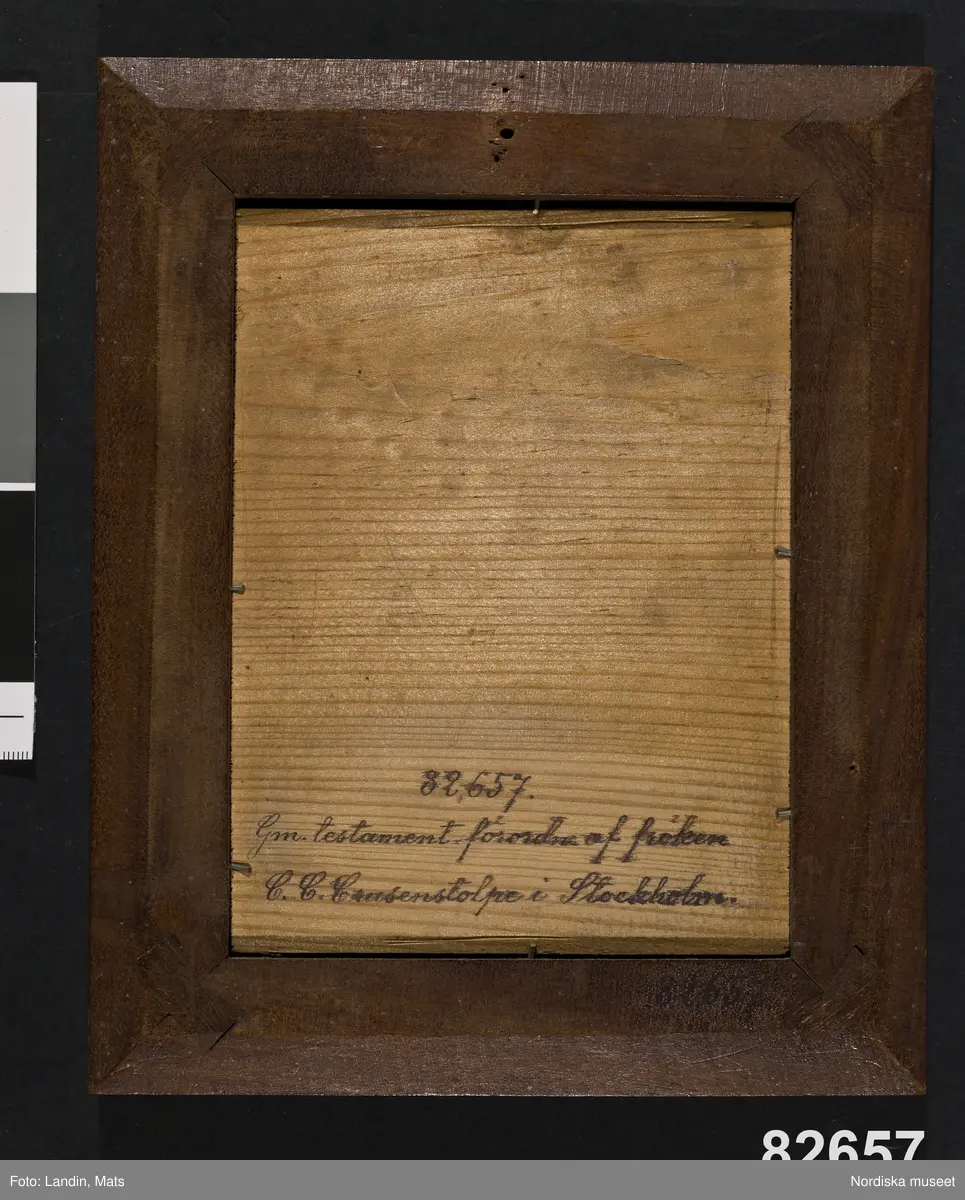 82,657.
Gm. testament förordn. af fröken
C. C. Crusenstolpe i Stockholm.
82657
Foto: Landin, Mats
Nordiska museet